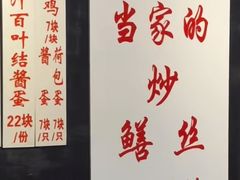 百叶结酱蛋
22块/份
鸡
7块/只
酱蛋
7块/只
荷包蛋
7块/只
当家的
炒
鳝丝